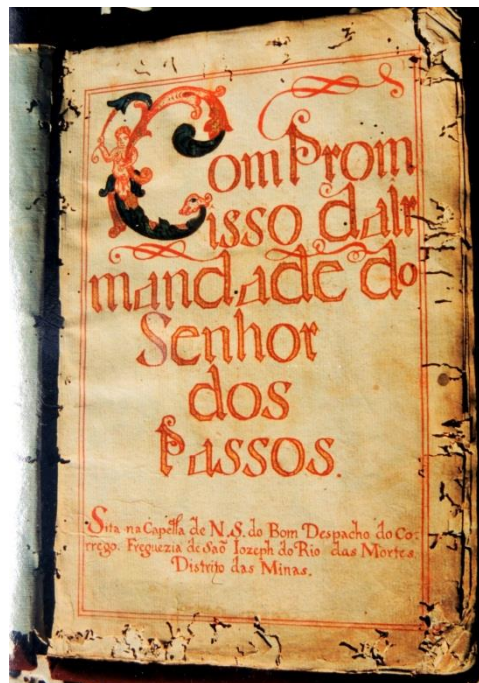 ComProm
isso dalr
mandade do
Senhor
dos
Passos.
Sita na Capella de N. S. do Bom Despacho do Co-
rrego. Freguezia de Saõ Iozeph do Rio das Mortes.
Distrito das Minas.